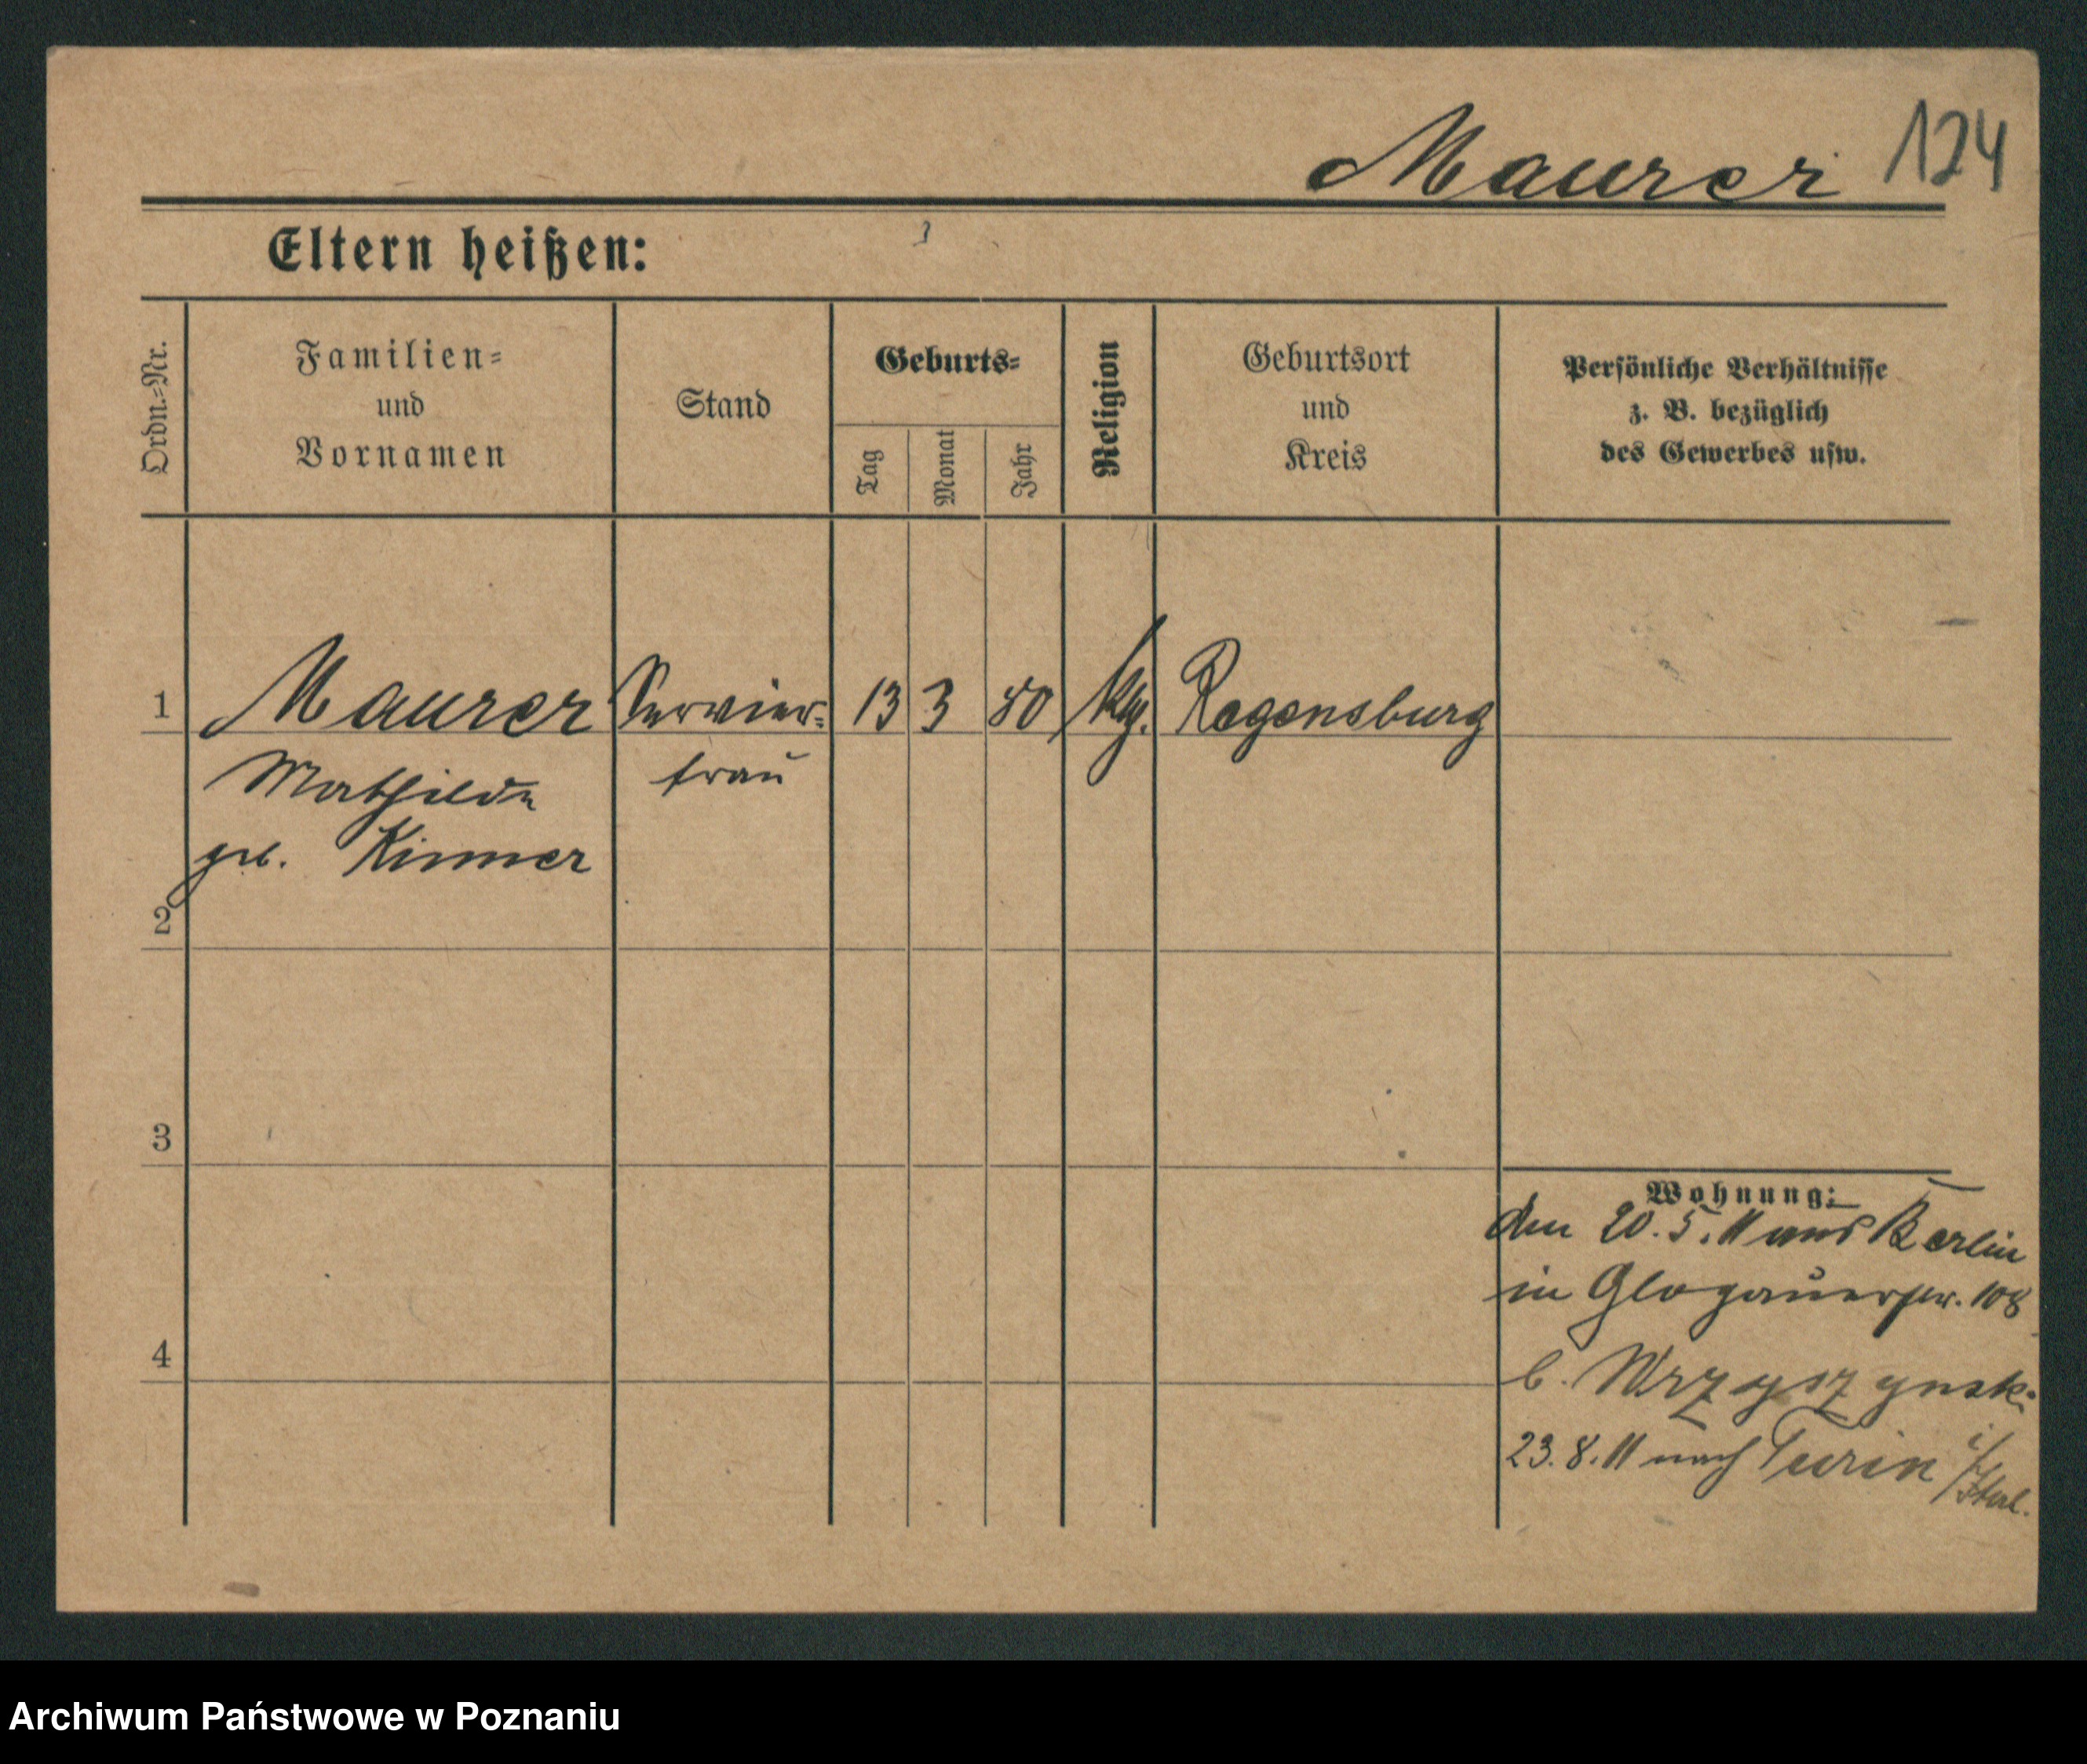 Maurer 124
Eltern heißen:
Ordn.=Nr.
Familien=
und
Vornamen
Stand
Geburts=
Tag
Monat
Jahr
Religion
Geburtsort
und
Kreis
Persönliche Verhältnisse
z. B. bezüglich
des Gewerbes usw.
1 Maurer Servier= 13 3 80 Regensburg
Mathilde frau
geb. Kinner
2
3
4
Wohnung:
den 20.5.11 aus Berlin
in Glogauerstr. 108
b. Wrzyszynski
23.8.11 nach Turin i/Ital.
Archiwum Państwowe w Poznaniu